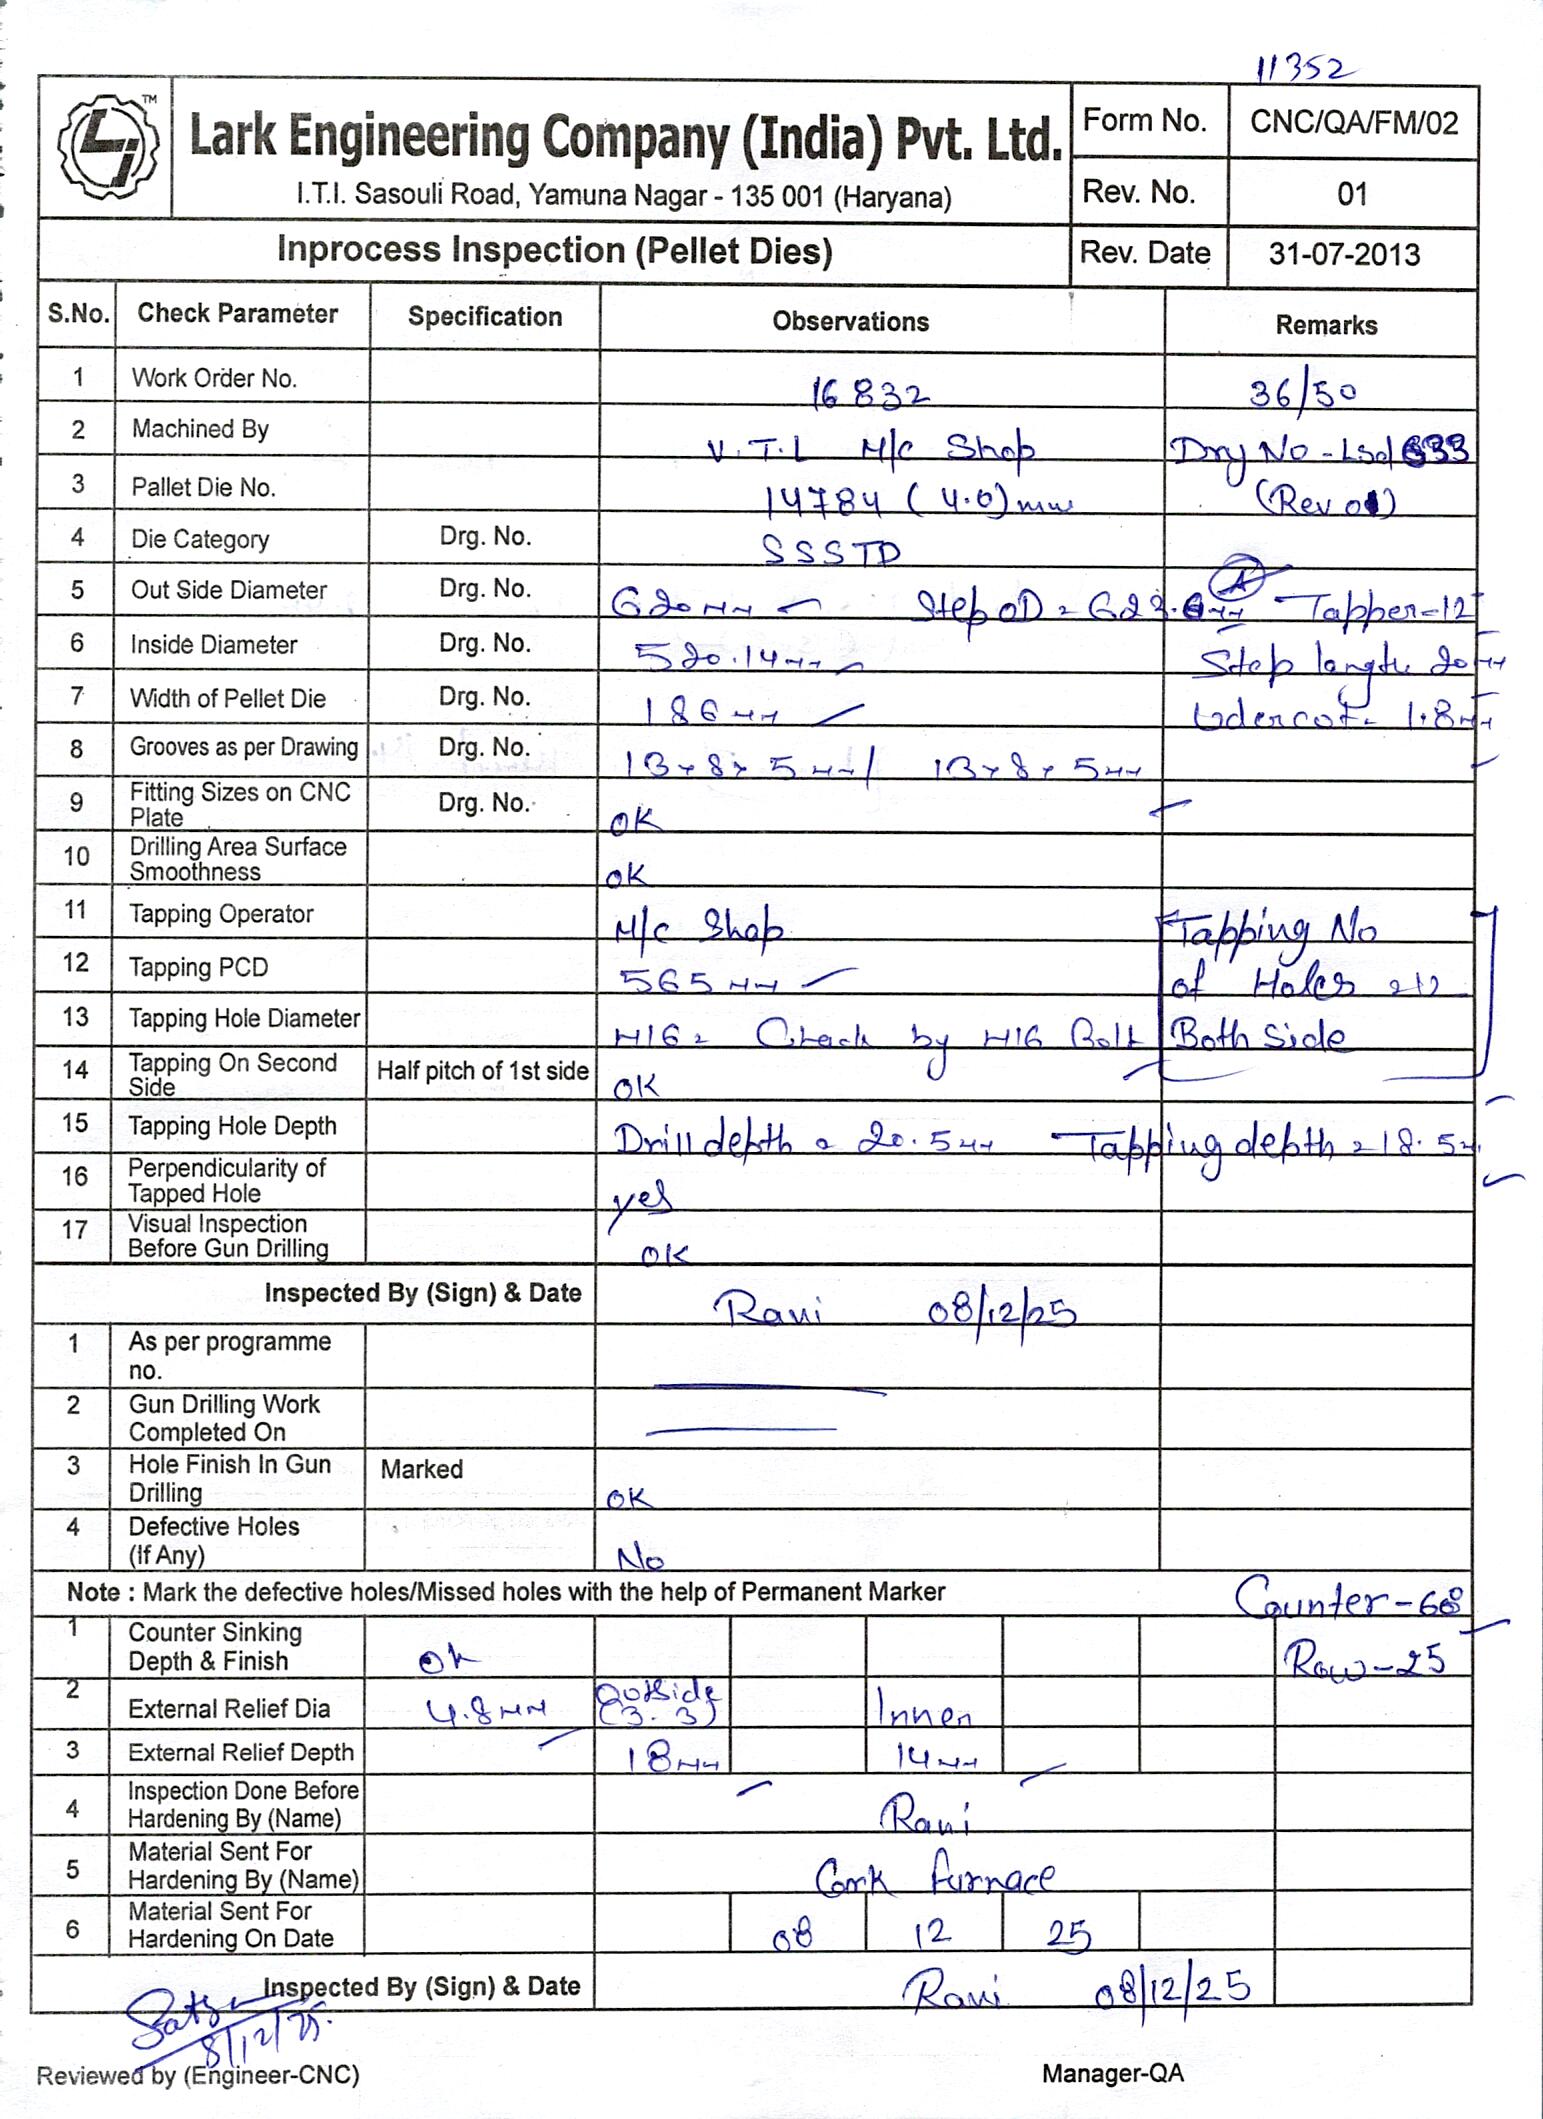 11352
TM
Lark Engineering Company (India) Pvt. Ltd.
I.T.I. Sasouli Road, Yamuna Nagar - 135 001 (Haryana)
Form No. CNC/QA/FM/02
Rev. No. 01
Inprocess Inspection (Pellet Dies) Rev. Date 31-07-2013
S.No. Check Parameter Specification Observations Remarks
1 Work Order No. 16832 36/50
2 Machined By V.T.L M/c Shop Drg No - Lsd 633
3 Pallet Die No. 14784 (4.0)mm (Rev 01)
4 Die Category Drg. No. SSSTD
5 Out Side Diameter Drg. No. 620mm Step OD = Tapper-12
6 Inside Diameter Drg. No. 520.14mm Step length 20mm
7 Width of Pellet Die Drg. No. 186mm 1.8mm
8 Grooves as per Drawing Drg. No. 13x8x5mm/ 13x8x5mm
9 Fitting Sizes on CNC Plate Drg. No. OK
10 Drilling Area Surface Smoothness OK
11 Tapping Operator M/c Shop Tapping No
12 Tapping PCD 565mm of Holes = 12
13 Tapping Hole Diameter M16 = Check by M16 Bolt Both Side
14 Tapping On Second Side Half pitch of 1st side OK
15 Tapping Hole Depth Drill depth = 20.5mm Tapping depth = 18.5m
16 Perpendicularity of Tapped Hole yes
17 Visual Inspection Before Gun Drilling OK
Inspected By (Sign) & Date Ravi 08/12/25
1 As per programme no.
2 Gun Drilling Work Completed On
3 Hole Finish In Gun Drilling Marked OK
4 Defective Holes (If Any) No
Note : Mark the defective holes/Missed holes with the help of Permanent Marker Counter-68
1 Counter Sinking Depth & Finish Ok Row-25
2 External Relief Dia 4.8mm Outside (3.3) Inner
3 External Relief Depth 18mm 14mm
4 Inspection Done Before Hardening By (Name) Ravi
5 Material Sent For Hardening By (Name) furnace
6 Material Sent For Hardening On Date 08 12 25
Inspected By (Sign) & Date Ravi 08/12/25
8/12/25.
Reviewed by (Engineer-CNC) Manager-QA